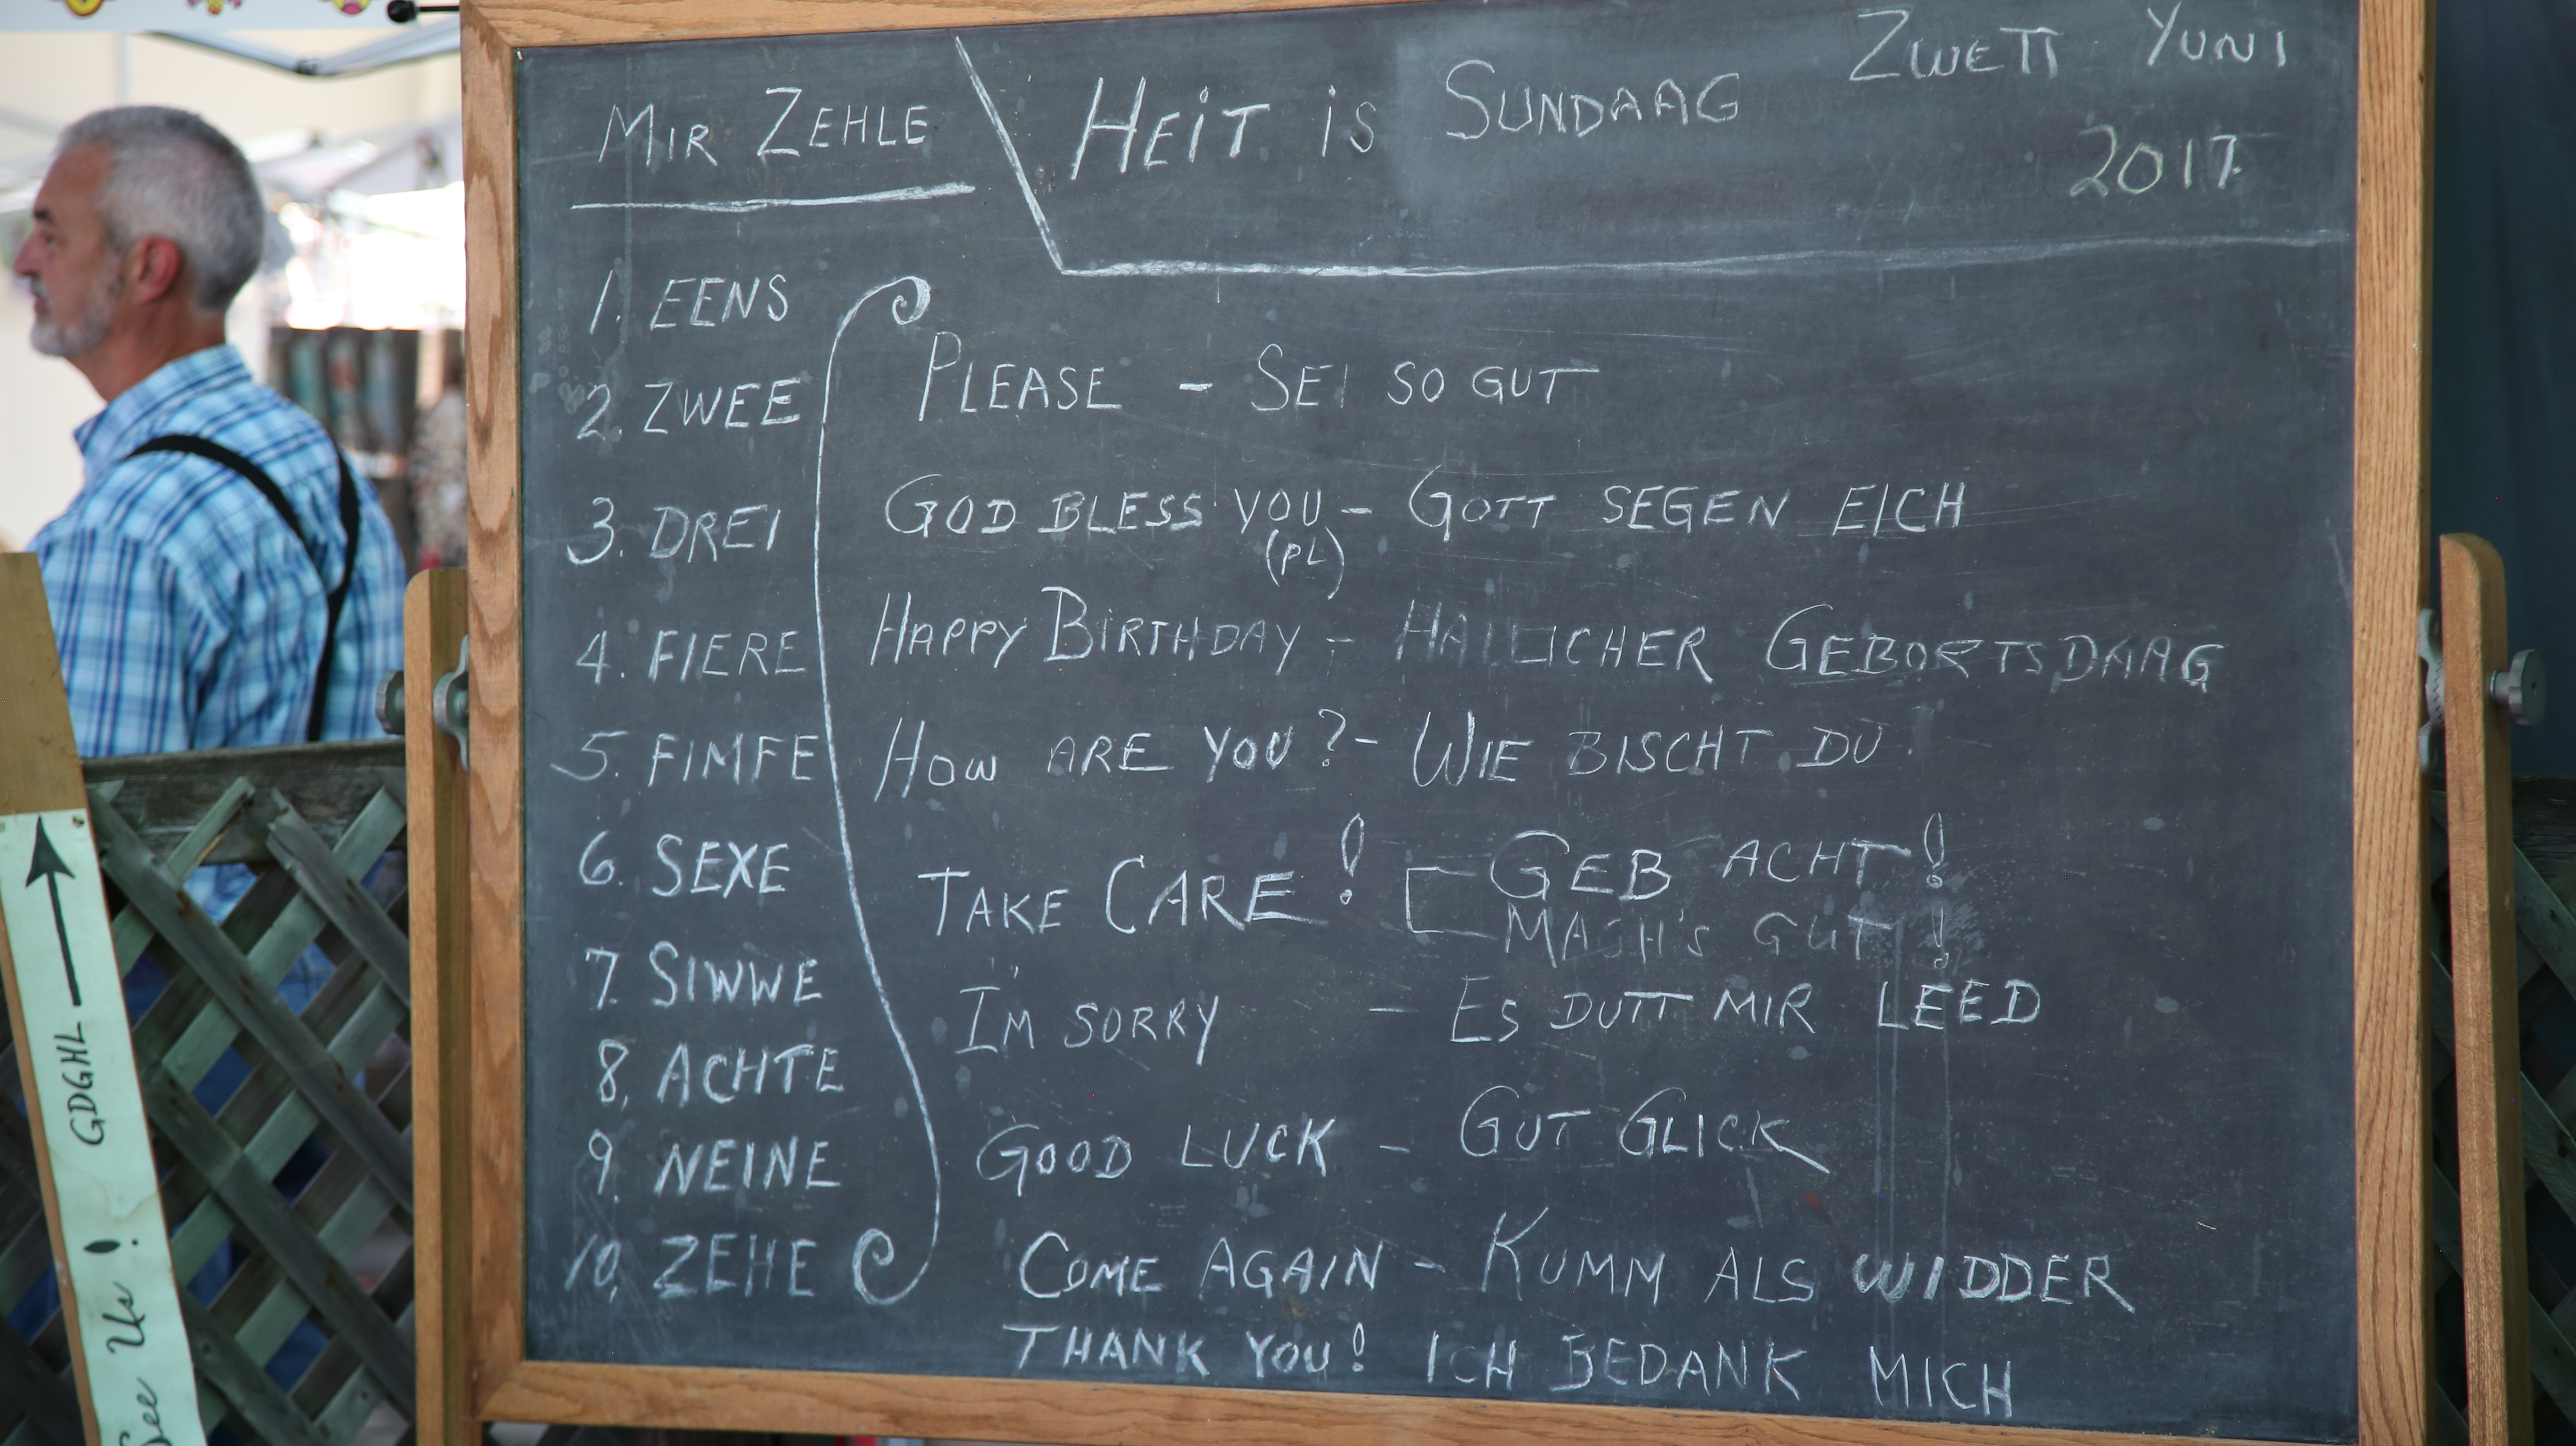 MIR ZEHLE
HEIT IS SUNDAAG ZWETT YUNI
2017
1. EENS
2. ZWEE
3. DREI
4. FIERE
5. FIMFE
6. SEXE
7. SIWWE
8. ACHTE
9. NEINE
10. ZEHE
PLEASE - SEI SO GUT
GOD BLESS YOU - GOTT SEGEN EICH
(PL)
HAPPY BIRTHDAY - HALLICHER GEBORTSDAAG
HOW ARE YOU? - WIE BISCHT DU?
TAKE CARE! GEB ACHT!
MACH'S GUT!
I'M SORRY - ES DUTT MIR LEED
GOOD LUCK - GUT GLICK
COME AGAIN - KUMM ALS WIDDER
THANK YOU! ICH BEDANK MICH
GDGHL
See Us!